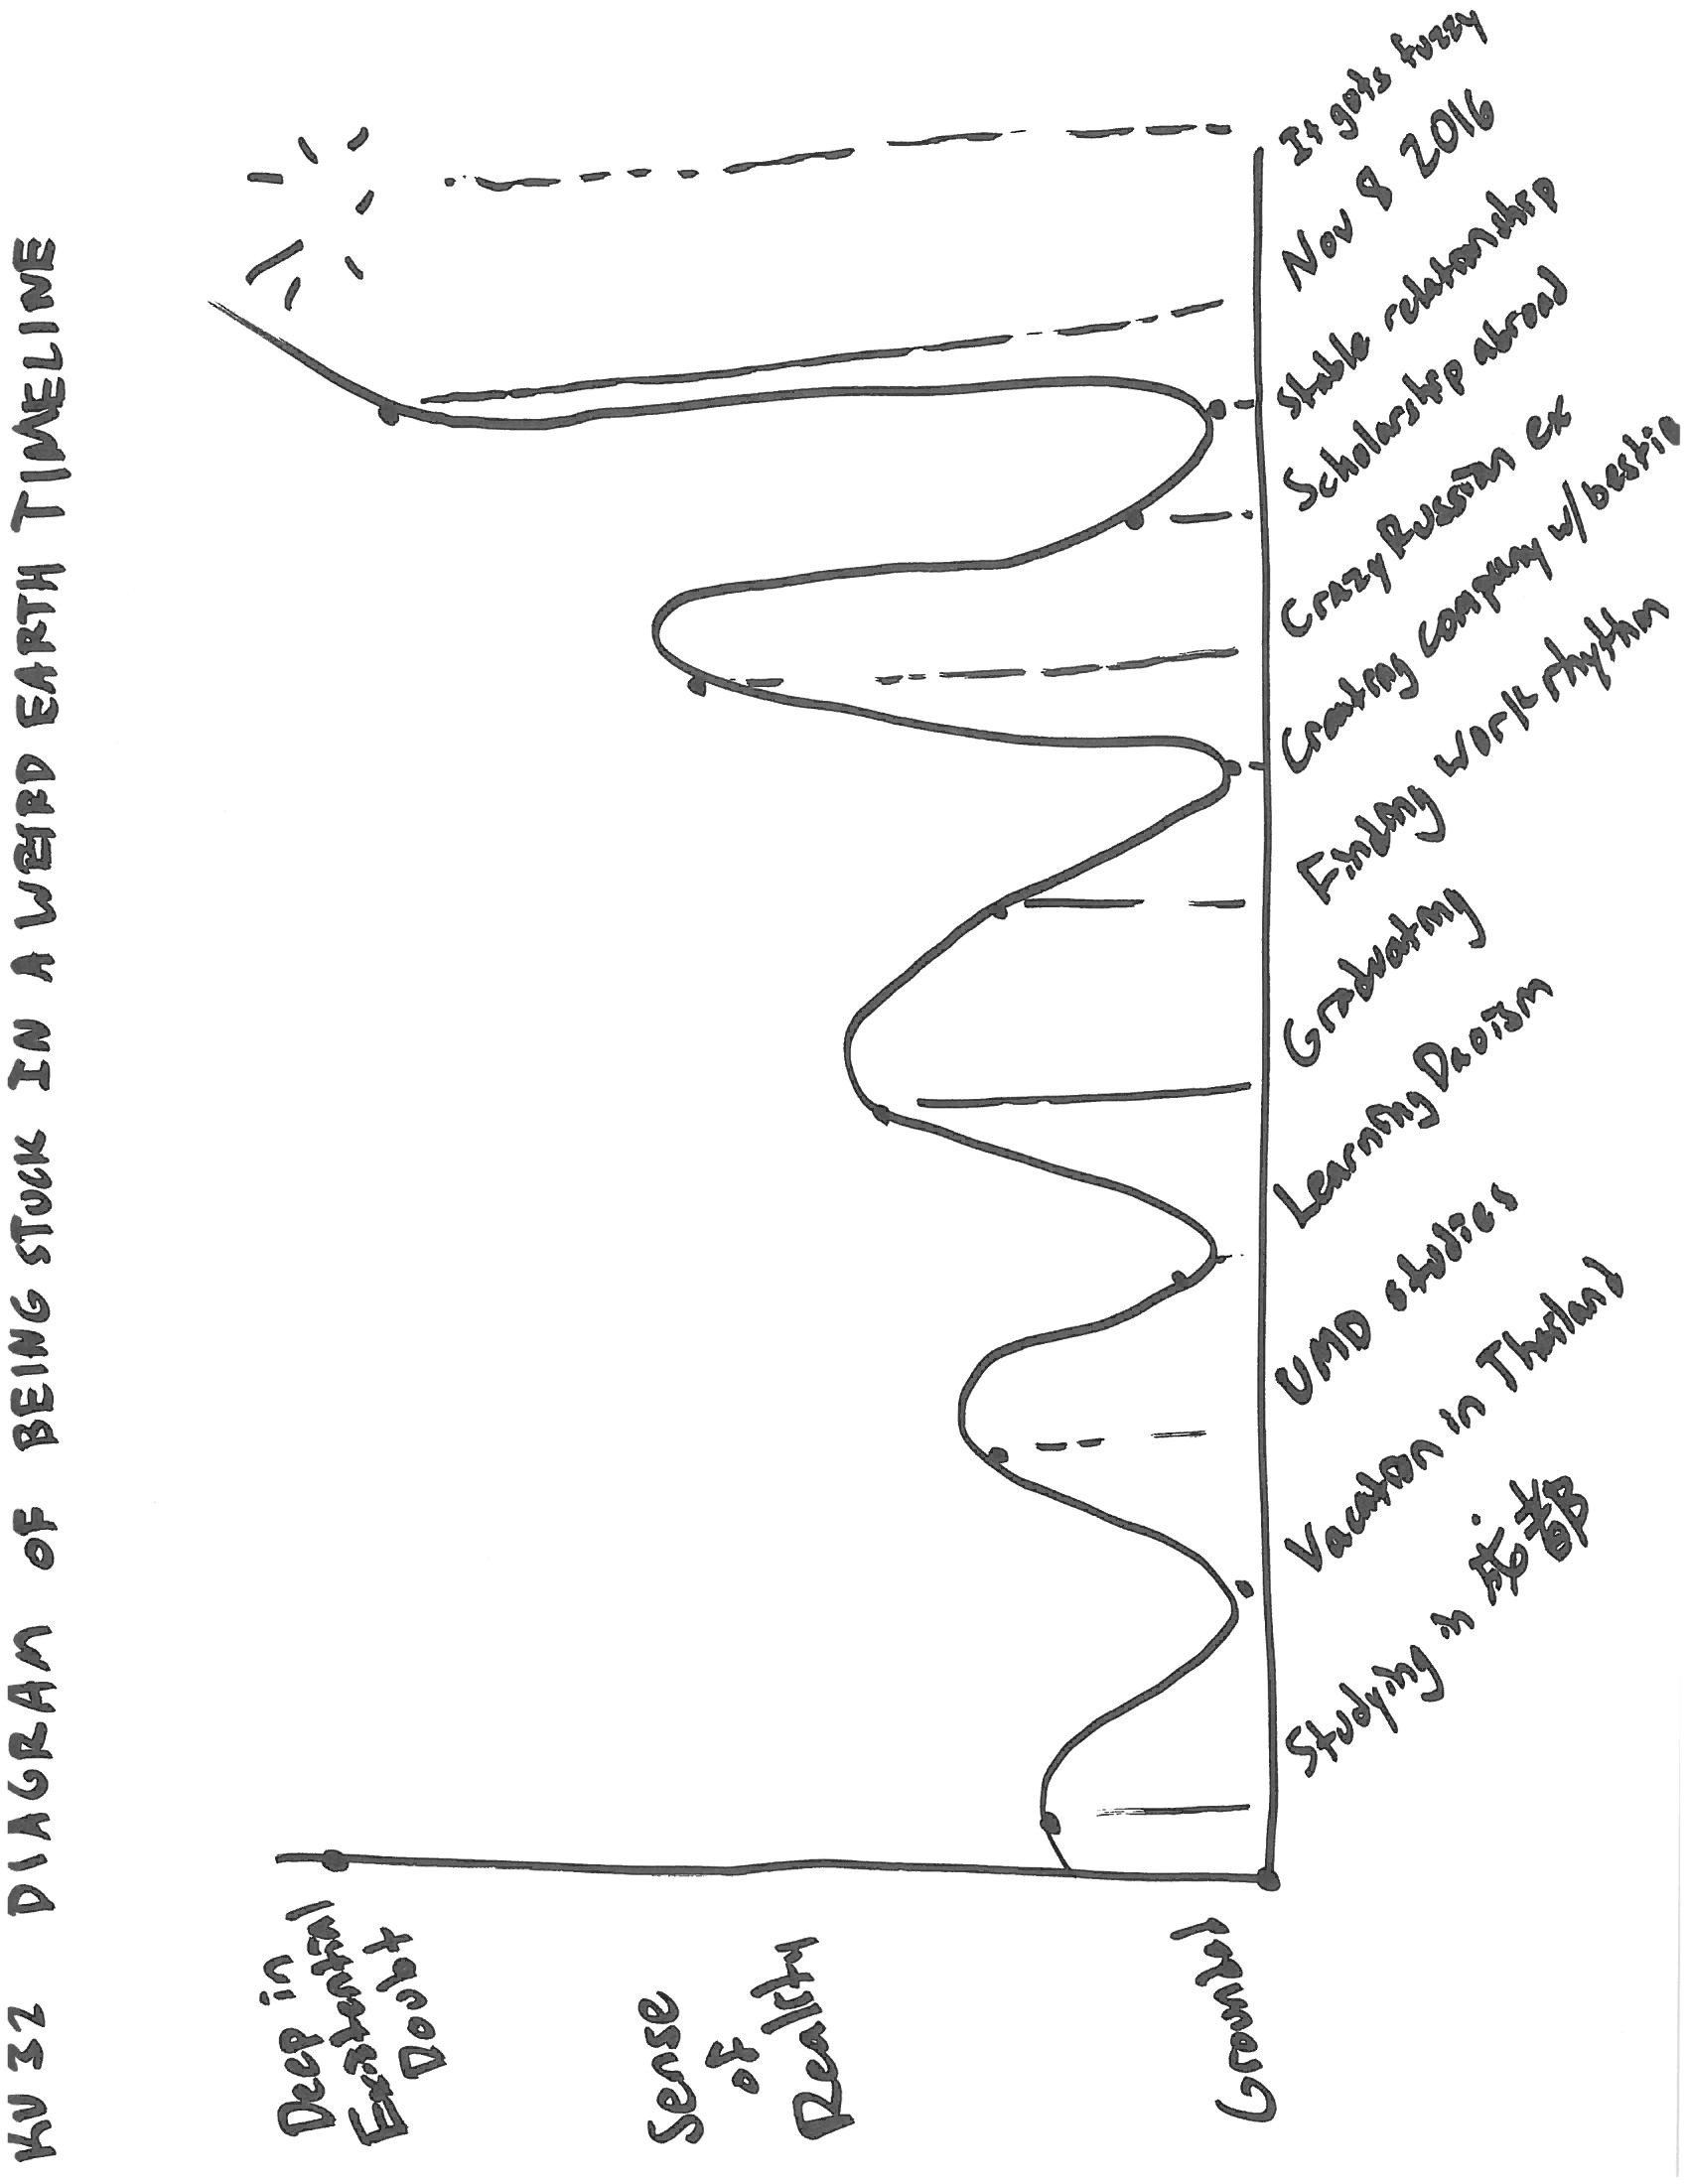 KU 32 DIAGRAM OF BEING STUCK IN A WEIRD EARTH TIMELINE
Deep in
Existential
Doubt
Sense
of
Reality
Grounded
Studying in 成都
Vacation in Thailand
UMD studies
Learning Daoism
Graduating
Finding work rhythm
Creating company w/ bestie
Crazy Russian ex
Scholarship abroad
Stable relationship
Nov 8 2016
It gets fuzzy